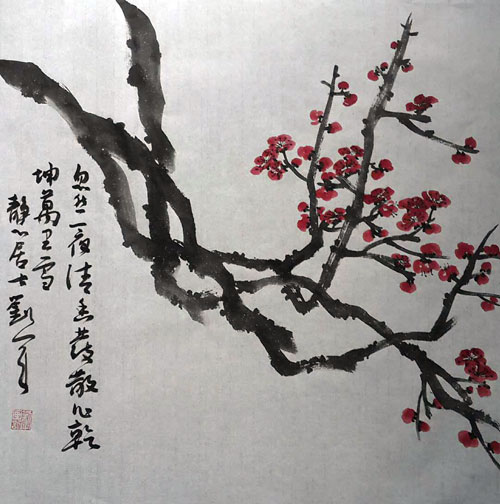 忽然一夜清香發散作乾
坤萬里
靜心居士劉一